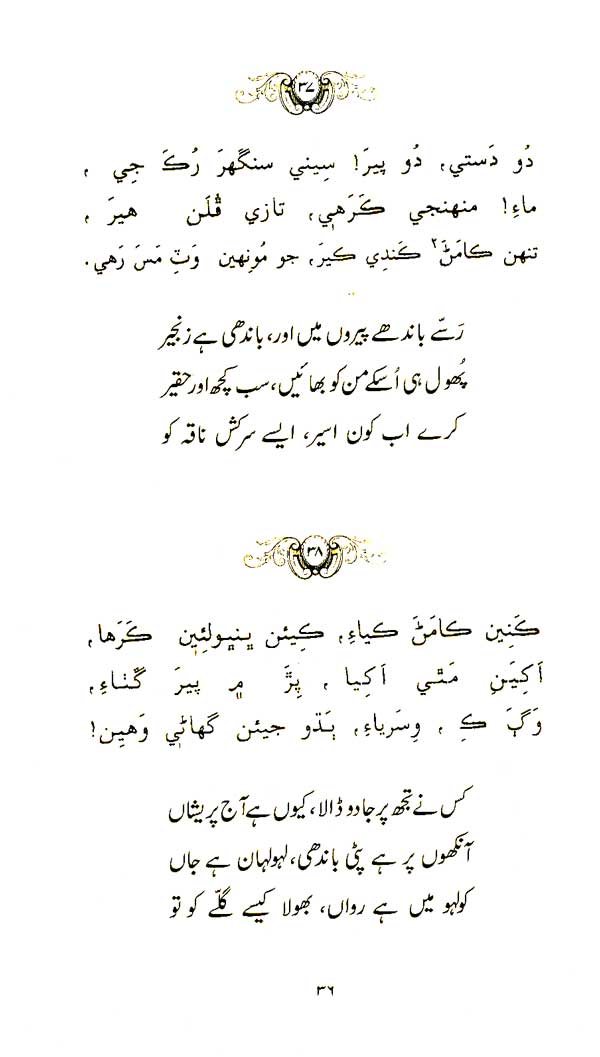 ۳۷
دُو دَستي، دُو پيرَ! سِيني سنگهرَ رُڪَ جِي ،
ماءِ! منهنجي ڪَرَهي، تازي ڦُلَن هيرَ ،
تنهن ڪامَڻَ۲ ڪَندِي ڪيرَ، جو مُونهين وَٽِ مَسَ رَهي.
رَسّے باندھے پیروں میں اور، باندھی ہے زنجیر
پُھول ہی اُسکے من کو بھائیں، سب کچھ اور حقیر
کرے اب کون اسیر، ایسے سرکش ناقہ کو
۳۸
ڪَنِين ڪامَڻَ ڪياءِ، ڪِيئن ڀنڀولئِين ڪَرَها،
اَکِيَنِ مَٿي اَکِيا ، پِڙَ ۾ پيرَ گَٺاءِ،
وَڳَ ڪِ ، وِسَرياءِ، ٻَڌو جيئن گهاڻي وَهِين!
کس نے تجھ پر جادو ڈالا، کیوں ہے آج پریشاں
آنکھوں پر ہے پٹی باندھی، لہولہان ہے جاں
کولہو میں ہے رواں، بھولا کیسے گلّے کو تو
۳۶